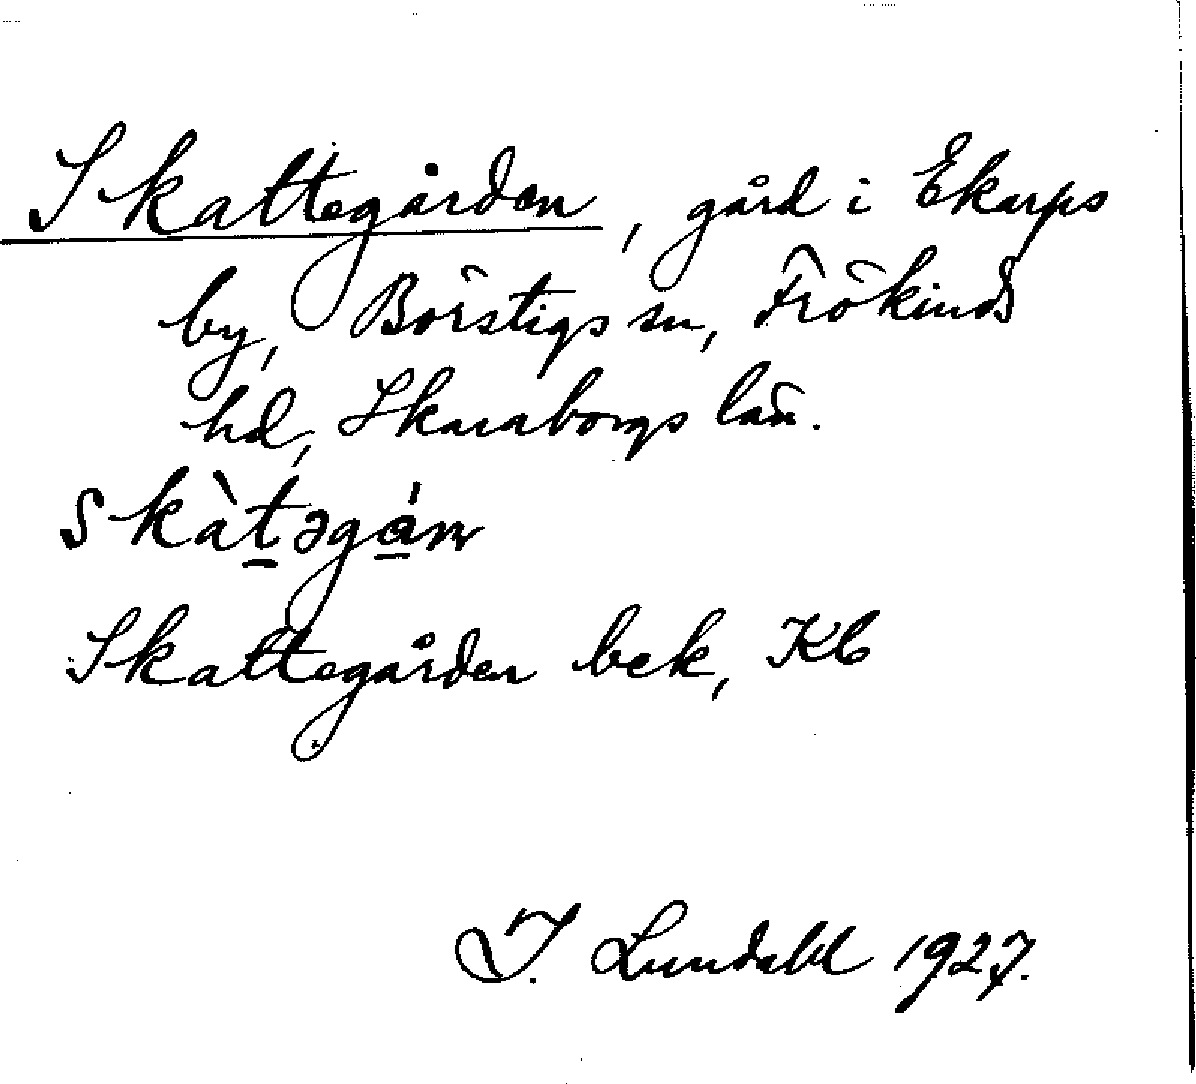 Skattegården, gård i Ekarps
by, Börstigs sn, Frökinds
hd, Skaraborgs län.
skàt̠əgá̠n
Skattegården bek, Kb
I. Lundahl 1927.